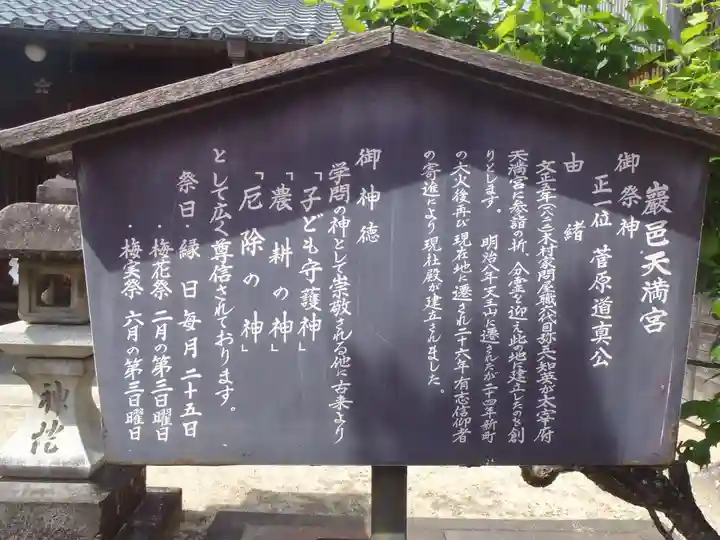 巖邑天満宮
御祭神
正一位 菅原道真公
由緒
文正五年(一八二二)木村家問屋職六代目弥五八知英が太宰府
天満宮に参詣の折、分霊を迎え此の地に建立したのを創
りとします。 明治八年天王山に遷されたが二十四年新町
の大火後再び現在地に遷され二十六年有志信仰者
の寄進により現社殿が建立されました。
御神徳
学問の神として崇敬される他に古来より
「子ども守護神」
「農耕の神」
「厄除の神」
として広く尊信されております。
祭日・縁日 毎月二十五日
・梅花祭 二月の第三日曜日
・梅実祭 六月の第三日曜日
神燈